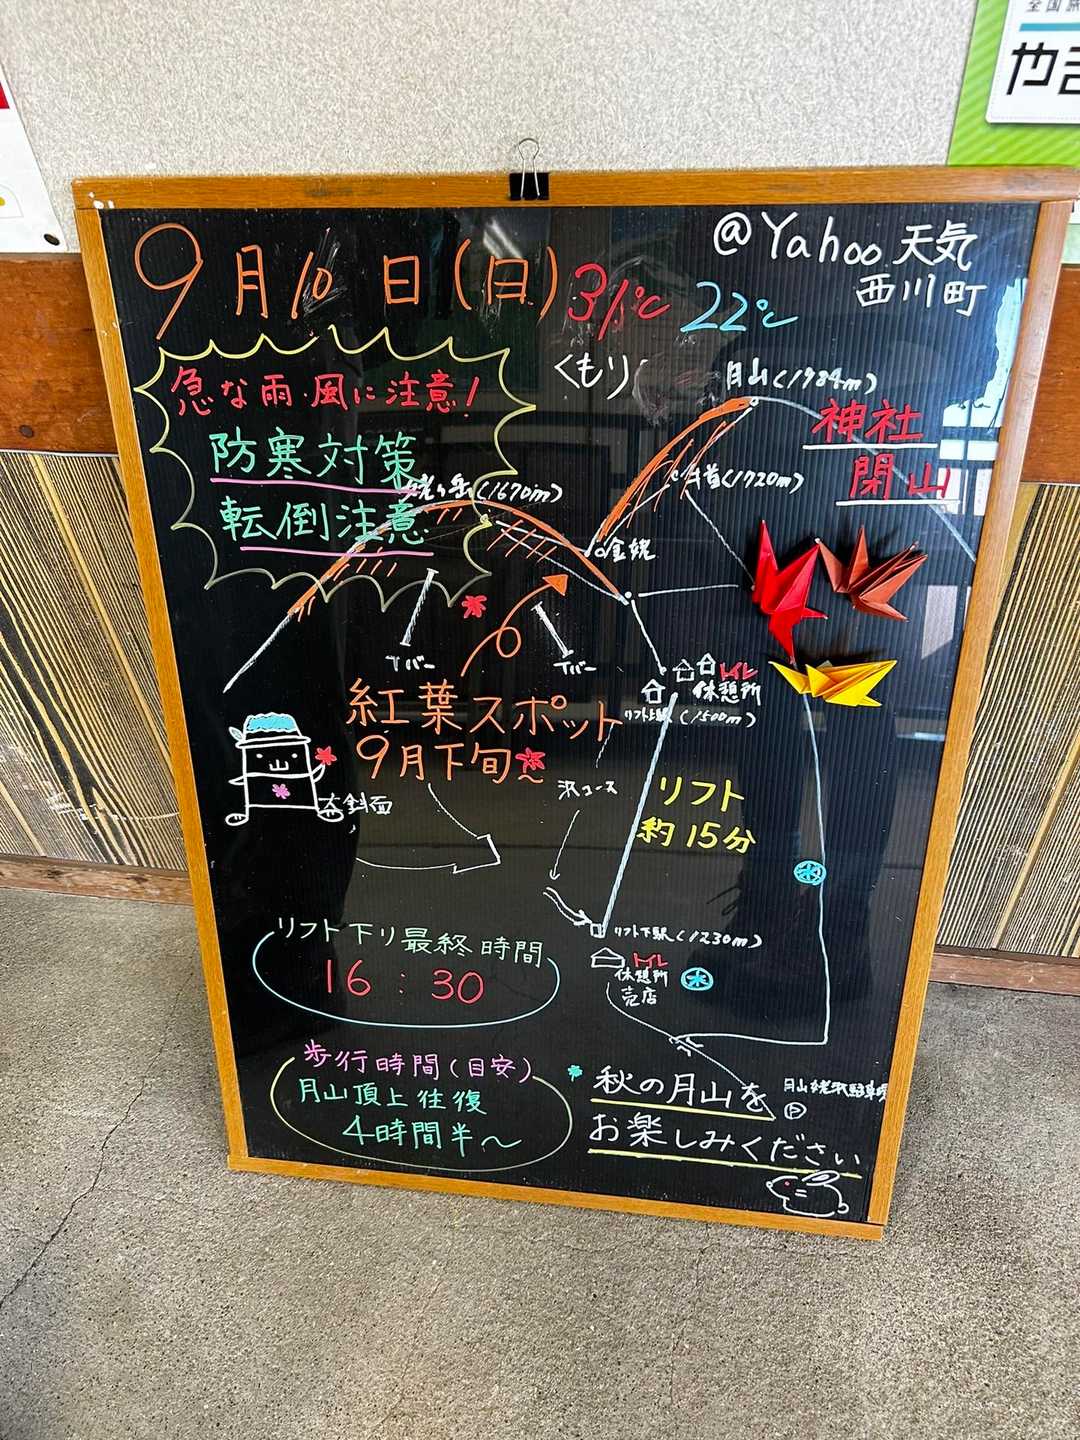 全国旅
やま
9月10日(日) 31℃ 22℃
@Yahoo天気
西川町
くもり
急な雨・風に注意!
防寒対策
転倒注意
月山(1984m)
神社
閉山
姥ヶ岳(1670m)
牛首(1720m)
金姥
Tバー
Tバー
トイレ
休憩所
リフト上駅(1500m)
紅葉スポット
9月下旬~
大斜面
沢コース
リフト
約15分
水
リフト下駅(1230m)
トイレ
休憩所
売店
水
リフト下り最終時間
16:30
歩行時間(目安)
月山頂上往復
4時間半~
秋の月山を
お楽しみください
月山姥沢駐車場
P